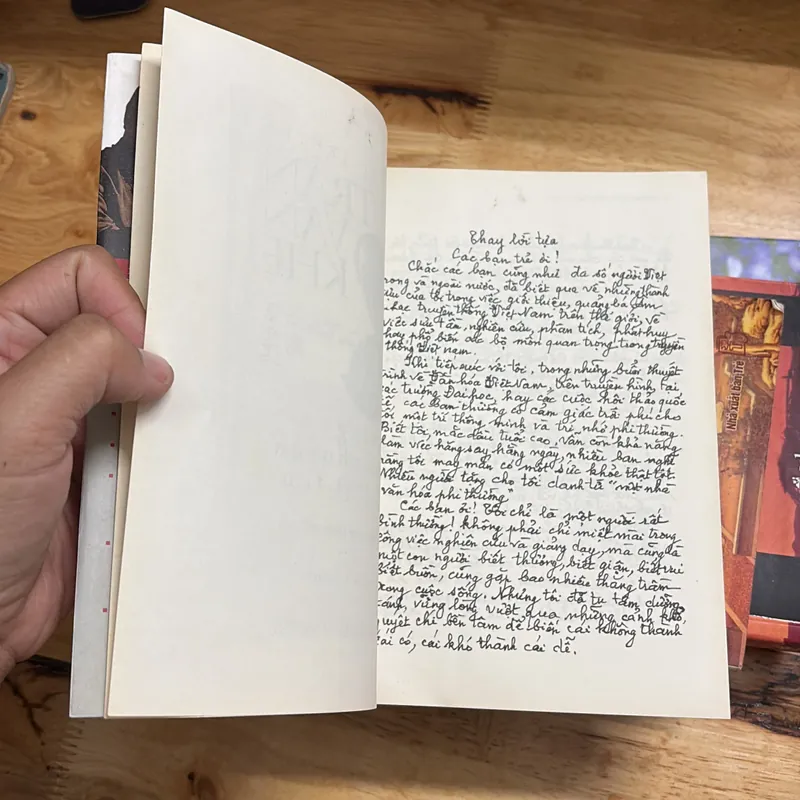 Thay lời tựa
Các bạn trẻ ơi!
Chắc các bạn cũng như đa số người Việt
trong và ngoài nước, đã biết qua về những thành
tựu của tôi trong việc giới thiệu, quảng bá âm
nhạc truyền thống Việt Nam trên thế giới, về
việc sưu tầm, nghiên cứu, phân tích, phát huy
hay phổ biến các bộ môn quan trọng trong truyền
thống Việt nam.
Khi tiếp xúc với tôi, trong những buổi thuyết
trình về Văn hóa Việt Nam, trên truyền hình, tại
các trường Đại học, hay các cuộc hội thảo quốc
tế các bạn thường có cảm giác trời phú cho
tôi một trí thông minh và trí nhớ phi thường.
Biết tôi, mặc dầu tuổi cao, vẫn còn khả năng
làm việc hăng say hằng ngày, nhiều bạn nghĩ
rằng tôi may mắn có một sức khỏe thật tốt.
Nhiều người tặng cho tôi danh từ "một nhà
văn hóa phi thường"
Các bạn ơi! Tôi chỉ là một người rất
bình thường! Không phải chỉ miệt mài trong
công việc nghiên cứu và giảng dạy, mà cũng là
một con người biết thương, biết giận, biết vui
biết buồn, cũng gặp bao nhiêu thăng trầm
trong cuộc sống. Nhưng tôi đã tu tâm dưỡng
tánh, vững lòng vượt qua những cảnh khó,
quyết chí bền tâm để biến cái không thành
cái có, cái khó thành cái dễ.
Nhà xuất bản Trẻ